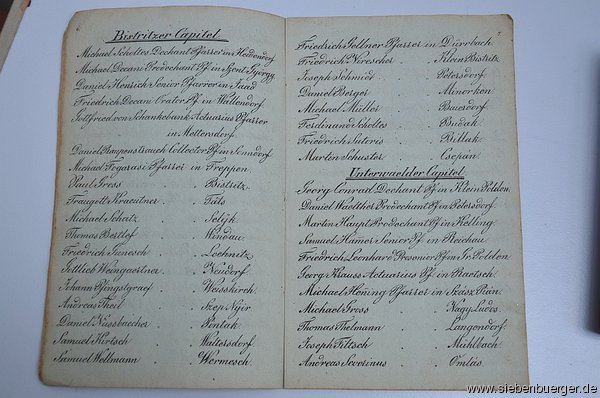 6
Bistritzer Capitel.
Michael Scholtes Dechant Pfarrer in Heidendorf
Michael Decani Prodechant Pf. in Szent György
Daniel Hensch Senior Pfarrer in Jaad
Friedrich Decani Orator Pf. in Wallendorf.
Gottfried von Schankebank Actuarius Pfarrer
in Mettersdorf.
Daniel Raupenstrauch Collector Pf. in Senndorf.
Michael Fogarasi Pfarrer in Treppen
Paul Gress . Bistritz
Traugott Kraeutner . Täts
Michael Schatz . Selyk
Thomas Bertlef . Windau
Friedrich . Lechnitz
Gottlieb Weingaertner . Neudorf
Johann Pfingstgraef . Weisskirch
Andreas Theil . Szep Nyir
Daniel Nussbaecher . Pontak
Samuel Kirtsch . Waltersdorf
Samuel Wellmann . Wermesch
7.
Friedrich Gellner Pfarrer in Dürrbach
Friedrich . Klein Bistritz
Joseph Schmidt . Petersdorf
Daniel Berger . Minorken
Michael Müller . Baierdorf
Ferdinand Scholtes . Budak
Friedrich Suteris . Billak
Martin Schuster . Csepan
Unterwaelder Capitel.
Georg Conradt Dechant Pf. in Klein Polden
Daniel Waelther Prodechant Pf. in Petersdorf
Martin Haupt Prodechant Pf. in Kelling
Samuel Hamer Senior Pf. in Reichau
Friedrich Leonhard Prosenior Pf. in Gr. Polden
Georg Krauss Actuarius Pf. in Raetsch
Michael Hen̄ing Pfarrer in Szász Pian
Michael Gress . Nagy Ludos
Thomas Thelmann . Langendorf
Joseph Filtsch . Mühlbach
Andreas Severinus . Omlás
www.siebenbuerger.de